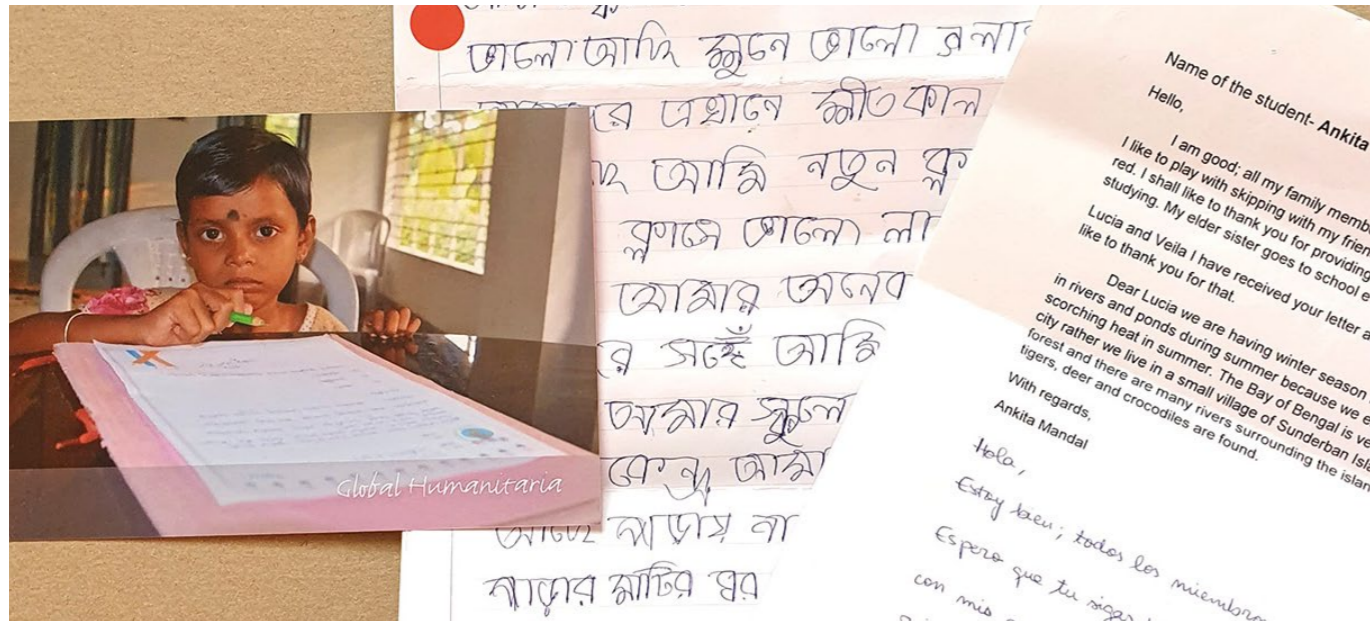 ভালো আছি শুনে ভালো লা
এখানে শীতকাল
আমি নতুন ক্লা
ক্লাসে ভালো লা
আমার অনেক
র সঙ্গে আমি
আমার স্কুলে
আমা
আছে পাড়ায় না
পাড়ার মাটির ঘর
Global Humanitaria
Name of the student- Ankita
Hello,
I am good; all my family memb
I like to play with skipping with my frien
red. I shall like to thank you for providing
studying. My elder sister goes to school e
Lucia and Veila I have received your letter a
like to thank you for that.
Dear Lucia we are having winter season
in rivers and ponds during summer because we e
scorching heat in summer. The Bay of Bengal is ve
city rather we live in a small village of Sunderban Isla
forest and there are many rivers surrounding the islan
tigers, deer and crocodiles are found.
With regards,
Ankita Mandal
Hola,
Estoy bien; todos los miembro
Espero que tu sigas
con mis